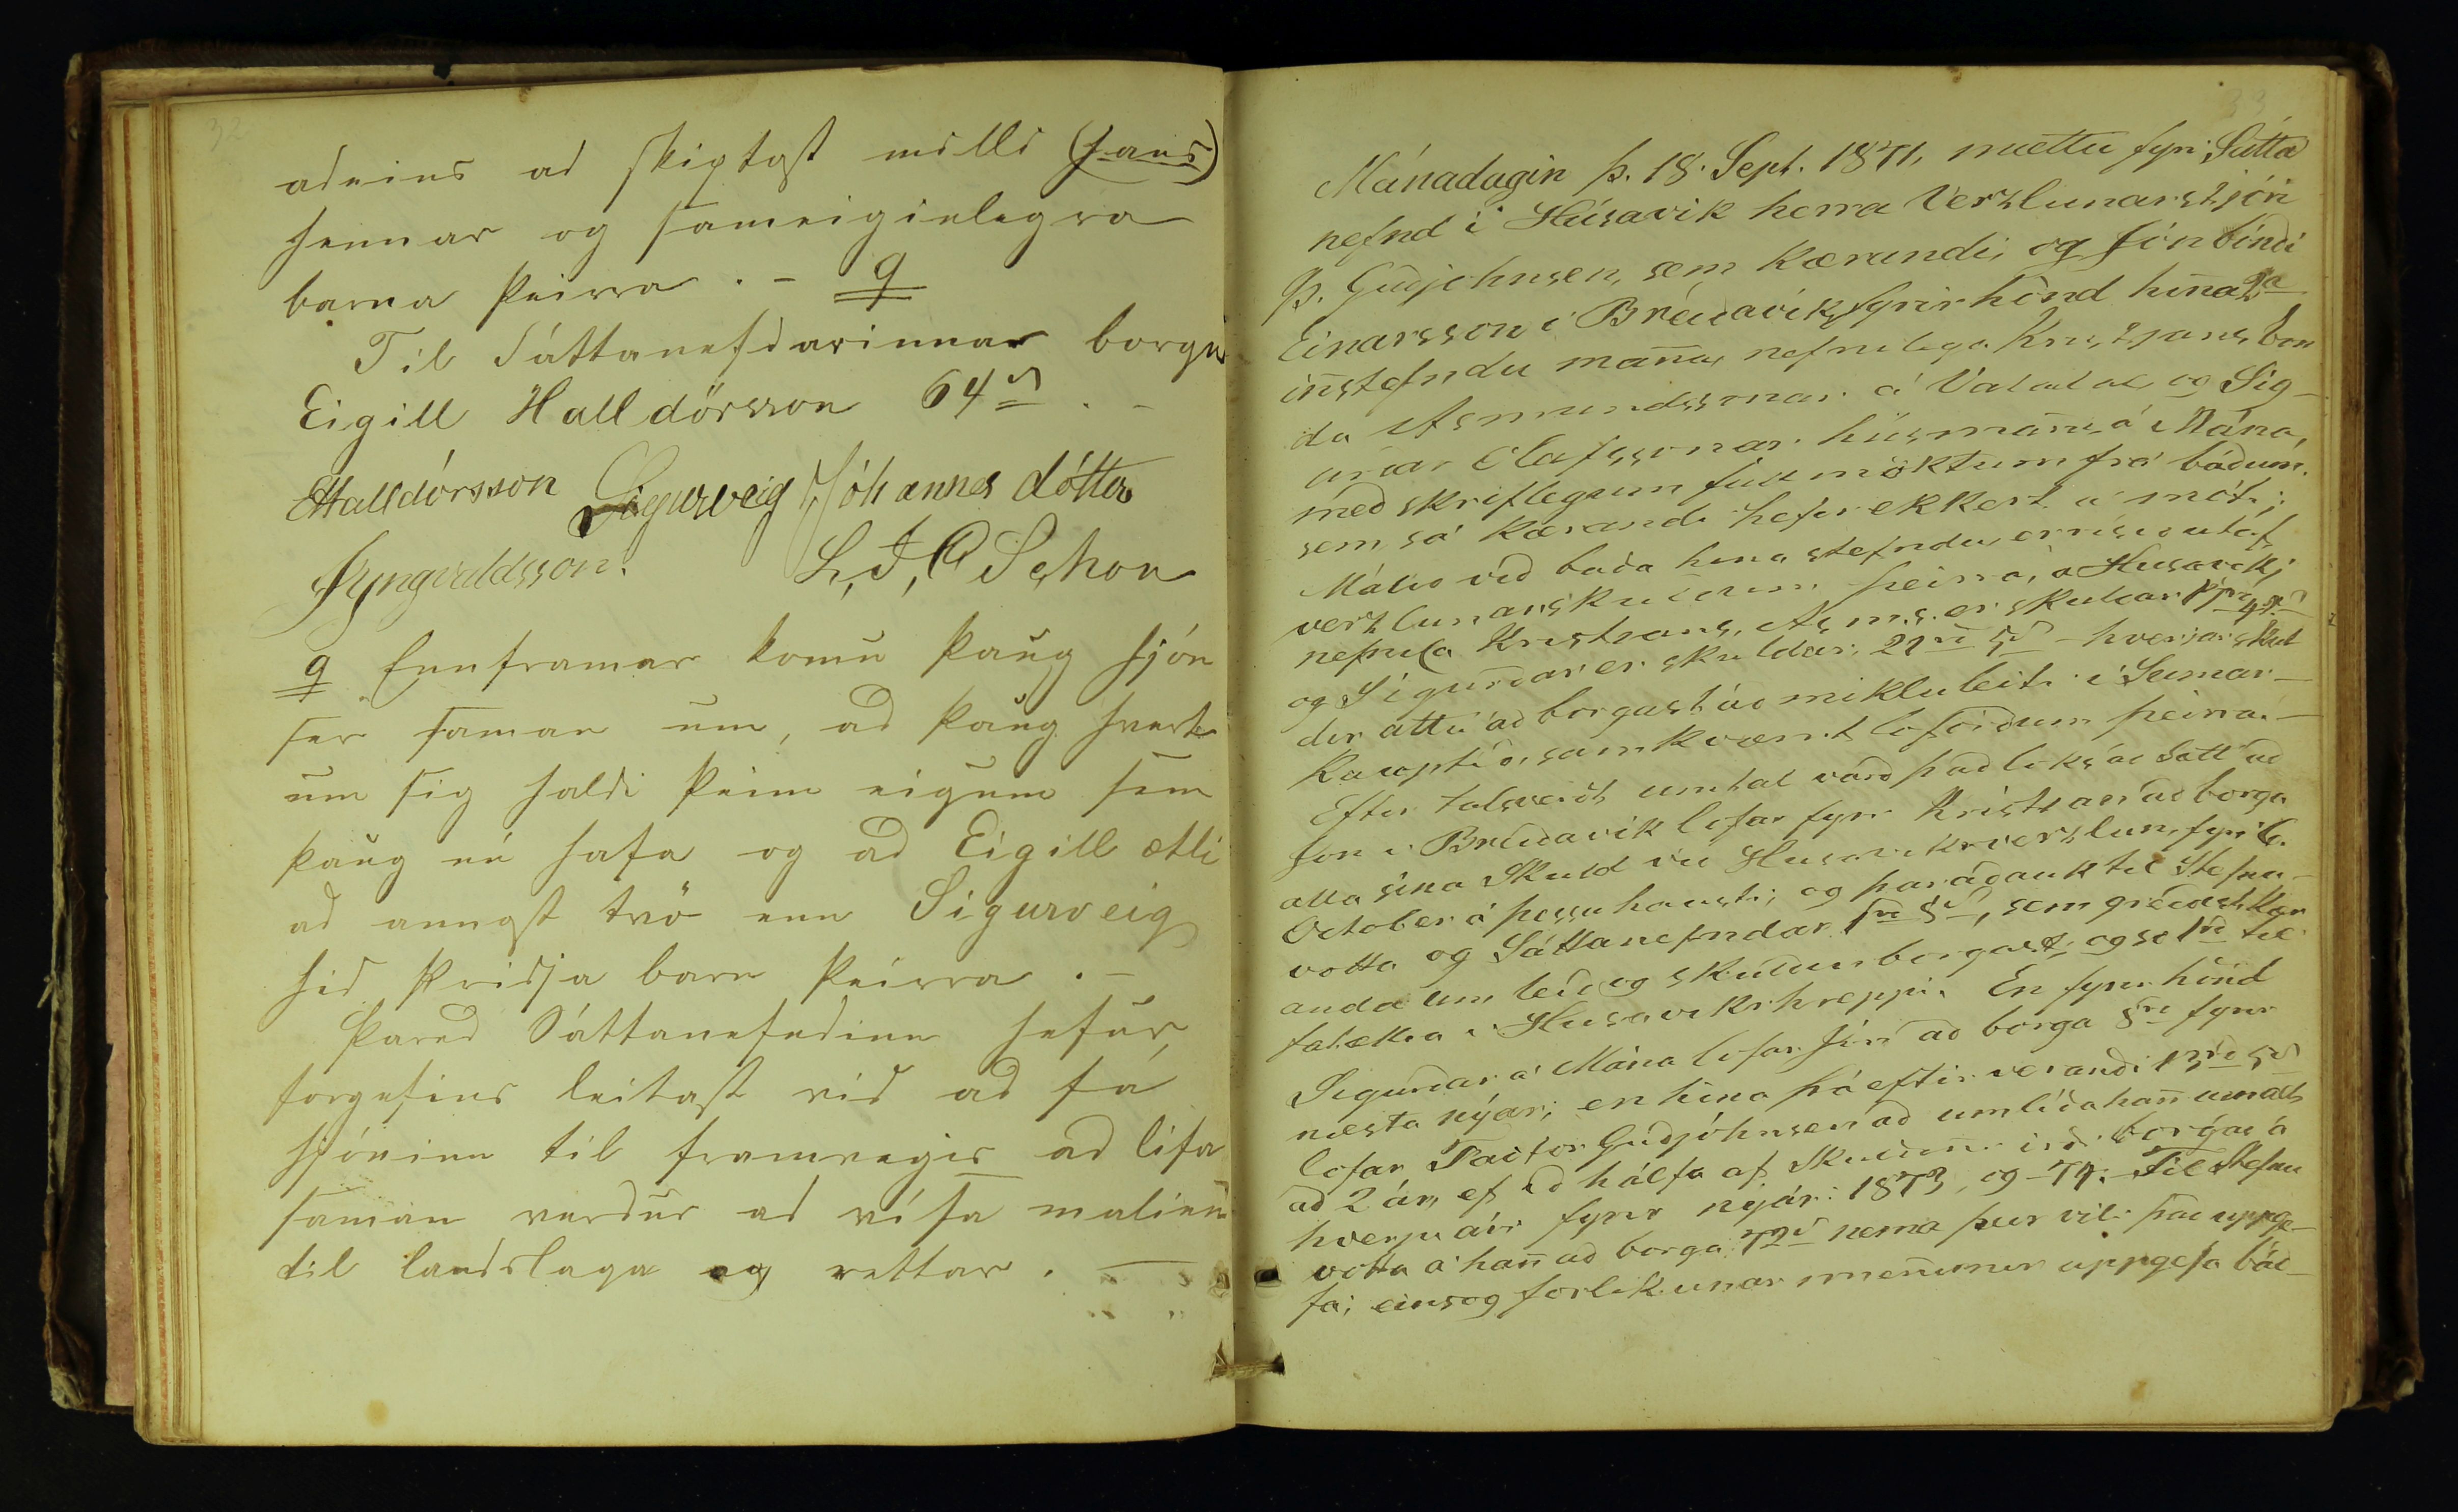 32
adeins ad skiptast milli (hans)
hennar og sameiginlegra
barna þeirra . – q
Til Sáttanefdarinnar borgar
Eigill Halldórsson 64 s . –
EHalldórsson Sigurveig Jóhannes dótter
JIyngvaldsson. L, J, C Schou
q Ennframar komu þaug hjón
sér saman um, ad þaug hvert
um sig haldi þeim eigum sem
þaug nú hafa og ad Eigill ætli
ad annast tvö enn Sigurveig
hid þridja barn þeirra . –
Þared Sáttanefndinn hefur
forgefins leitast vid ad fá
hjóninn til framvegis ad lifa
saman verdur ad vísa malinu
til landslaga og rettar . —
33
Mánadagin þ. 18. Sept. 1871, mættu fyri Sátta
nefnd i Húsavik herra Verslunarstjóri
Þ. Guðjohnsen, sem kærandi, og Jón bóndi
Einarsson i Breiðavik, fyrir hönd hina 2ja
instefndu mana, nefnilega Kristjans bon
da Asmundssonar á Valadal og Sig-
urðar Olafssonar húsmans á Mána,
með skriflegum fullmöktum frá báðum.
sem sá kærandi hefir ekkert á móti;
Málið við baða hina stefndu er risið utaf
verzlunarskuldum þeirra, á Húsavik;
nefnila Kristians, Asm.s. er skuldar
og Sigurðar er skuldar, 21 rd 5 s – hverjar skul
dir áttu að borgast að mikluleiti i Sumar-
kauptið, samkvæmt loforðum þeirra. –
Eftir talsverdt umtal varð það loksað Satt að
Jon i Breiðavik lofar fyrir Kristian að borga
alla sina Skuld við Husavikrverslun, fyri 6.
October á þessu hausti; og þaraðauk til Stefnu-
votta og Sáttanefndar 1 rd 8 s, sem greiðast kær
anda um leið og skuldin borgast; og so 1 rd til
fatækra i Húsavikrhreppi. En fyrir hönd
Sigurðar á Mána lofar Jón að borga 8 rd fyrir
næsta nýár; en hina þá eftir verandi 13 rd 5 s
lofar Factor Guðjóhnsen að umliða han um alt
að 2 ár, ef að hálfa af Skuldini irði borgað á
hverju ári fyrir nýár: 1873, og –74. – Til Stefnu
votta á han að borga 72 s nema þeir vili það uppge-
fa; einsog forlikunar menirnir uppgefa bád–